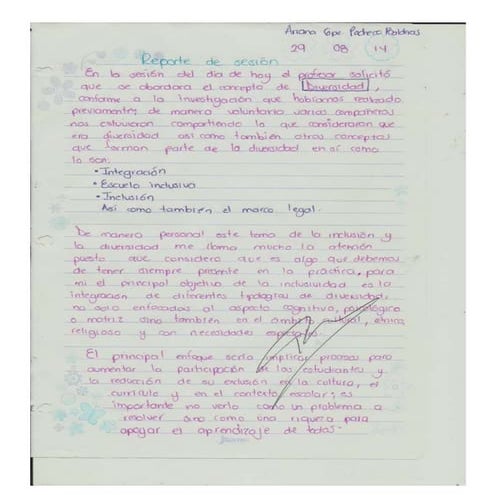 Ariana Gpe. Pacheco Roldnas
29 08 14
Reporte de sesión
En la sesión del día de hoy el profesor solicitó
que se abordara el concepto de Diversidad,
conforme a la investigación que habíamos realizado
previamente, de manera voluntaria varios compañeros
nos estuvieron compartiendo lo que consideraron que
era diversidad así como también otros conceptos
que forman parte de la diversidad en sí como
lo son:
• Integración
• Escuela inclusiva
• Inclusión
Así como también el marco legal.
De manera personal este tema de la inclusión y
la diversidad me llama mucho la atención
puesto que considero que es algo que debemos
de tener siempre presente en la práctica, para
mi el principal objetivo de la inclusividad es la
integración de diferentes tipologias de diversidad,
no solo enfocadas al aspecto cognitivo, psicológico
o motriz sino también en el ambito cultural, étnico,
religioso y con necesidades especiales.
El principal enfoque sería implicar procesos para
aumentar la participación de los estudiantes y
la reducción de su exclusión en la cultura, el
currículo y en el contexto escolar; es
importante no verlo como un problema a
resolver sino como una riqueza para
apoyar el aprendizaje de todas.